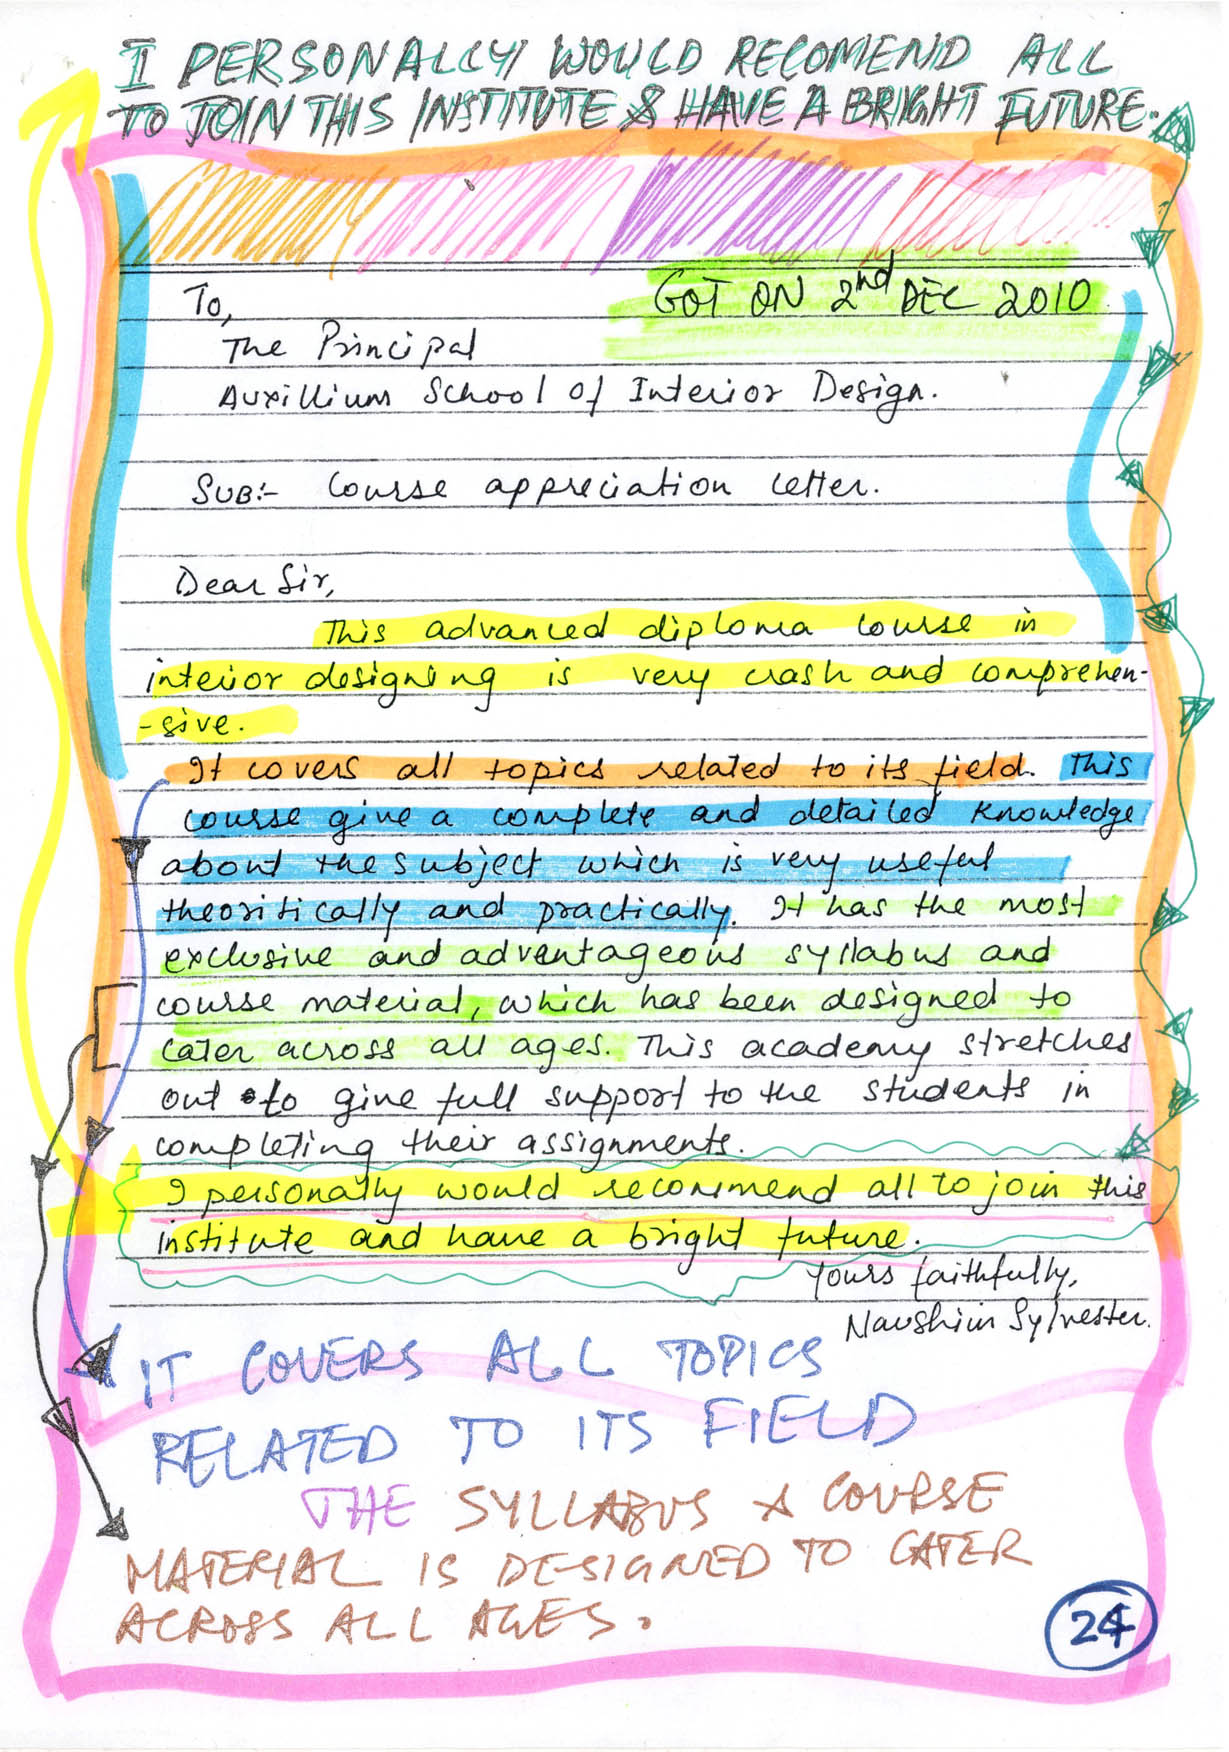 I PERSONALLY WOULD RECOMEND ALL
TO JOIN THIS INSTITUTE & HAVE A BRIGHT FUTURE.
GOT ON 2nd DEC 2010
To,
The Principal
Auxillium School of Interior Design.
SUB:- Course appreciation letter.
Dear Sir,
This advanced diploma course in
interior designing is very crash and comprehen-
-sive.
It covers all topics related to its field. This
course give a complete and detailed knowledge
about the subject which is very useful
theoritically and practically. It has the most
exclusive and adventageous syllabus and
course material, which has been designed to
cater across all ages. This academy stretches
out to give full support to the students in
completing their assignments.
I personally would recommend all to join this
institute and have a bright future.
Yours faithfully,
Naushin Sylvester.
IT COVERS ALL TOPICS
RELATED TO ITS FIELD
THE SYLLABUS & COURSE
MATERIAL IS DESIGNED TO CATER
ACROSS ALL AGES.
24